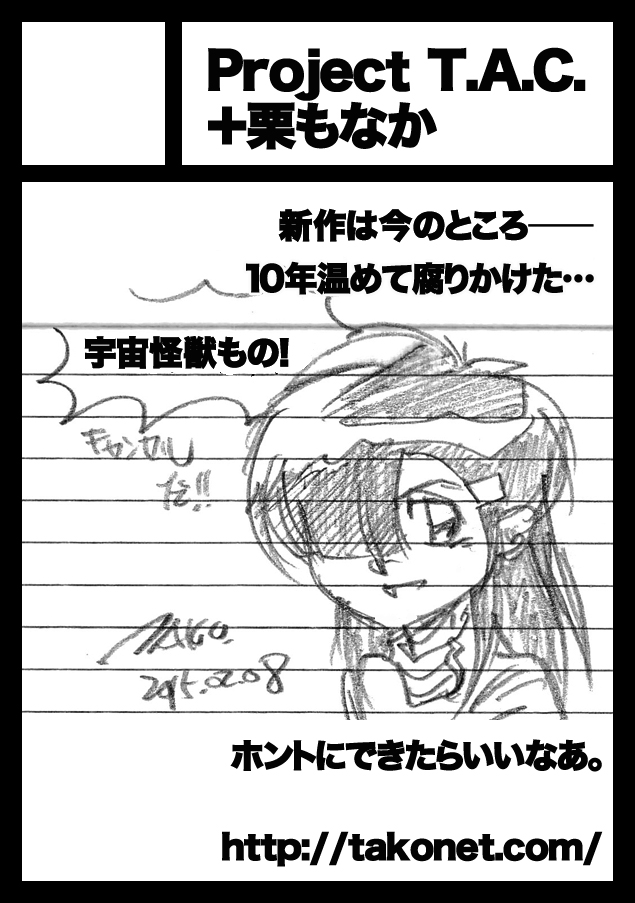 Project T.A.C.
+栗もなか
新作は今のところ──
10年温めて腐りかけた…
宇宙怪獣もの!
キャンセル
だ!!
TAKO.
2015.02.08
ホントにできたらいいなあ。
http://takonet.com/